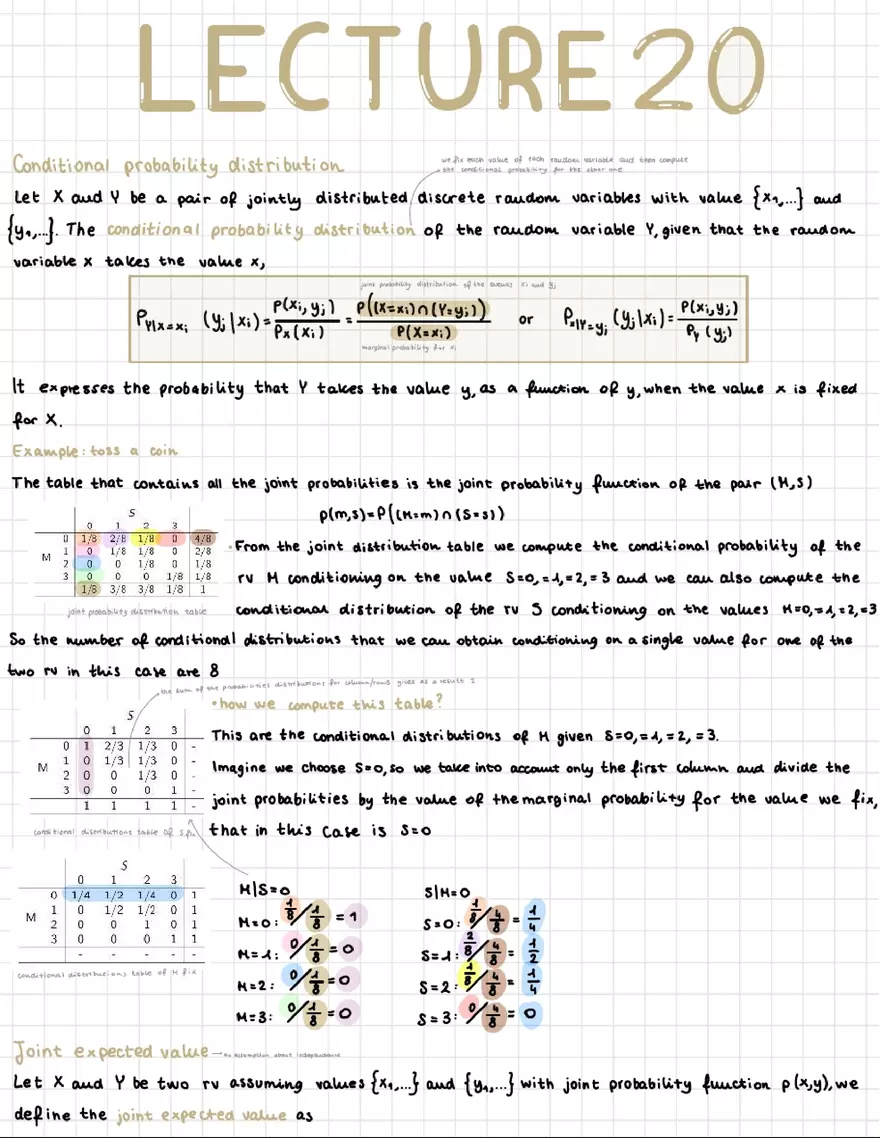 LECTURE 20
Conditional probability distribution
we fix each value of each random variable and then compute
the conditional probability for the other one
Let X and Y be a pair of jointly distributed discrete random variables with value {x₁,...} and
{y₁,...}. The conditional probability distribution of the random variable Y, given that the random
variable x takes the value x,
joint probability distribution of the events xi and yj
P_Y|X=xi (yj|xi) = P(xi,yj)/Px(xi) = P((X=xi)∩(Y=yj))/P(X=xi) or P_X|Y=yj (yj|xi) = P(xi,yj)/Py(yj)
marginal probability for xi
It expresses the probability that Y takes the value y, as a function of y, when the value x is fixed
for X.
Example: toss a coin
The table that contains all the joint probabilities is the joint probability function of the pair (M,S)
p(m,s)=P((M=m)∩(S=s))
S
0 1 2 3
0 1/8 2/8 1/8 0 4/8
M 1 0 1/8 1/8 0 2/8
2 0 0 1/8 0 1/8
3 0 0 0 1/8 1/8
1/8 3/8 3/8 1/8 1
joint probability distribution table
·From the joint distribution table we compute the conditional probability of the
rv M conditioning on the value S=0,=1,=2,=3 and we can also compute the
conditional distribution of the rv S conditioning on the values M=0,=1,=2,=3
So the number of conditional distributions that we can obtain conditioning on a single value for one of the
two rv in this case are 8
the sum of the probabilities distributions for column/rows gives as a result 1
S
0 1 2 3
0 1 2/3 1/3 0 -
M 1 0 1/3 1/3 0 -
2 0 0 1/3 0 -
3 0 0 0 1 -
1 1 1 1 -
conditional distributions table of S fix
·how we compute this table?
This are the conditional distributions of M given S=0,=1,=2,=3.
Imagine we choose S=0, so we take into account only the first column and divide the
joint probabilities by the value of the marginal probability for the value we fix,
that in this case is S=0
S
0 1 2 3
0 1/4 1/2 1/4 0 1
M 1 0 1/2 1/2 0 1
2 0 0 1 0 1
3 0 0 0 1 1
- - - - -
conditional distributions table of M fix
M|S=0
M=0: 1/8/1/8 = 1
M=1: 0/1/8 = 0
M=2: 0/1/8 = 0
M=3: 0/1/8 = 0
S|M=0
S=0: 1/8/4/8 = 1/4
S=1: 2/8/4/8 = 1/2
S=2: 1/8/4/8 = 1/4
S=3: 0/4/8 = 0
Joint expected value → no assumption about independence
Let X and Y be two rv assuming values {x₁,...} and {y₁,...} with joint probability function p(x,y), we
define the joint expected value as